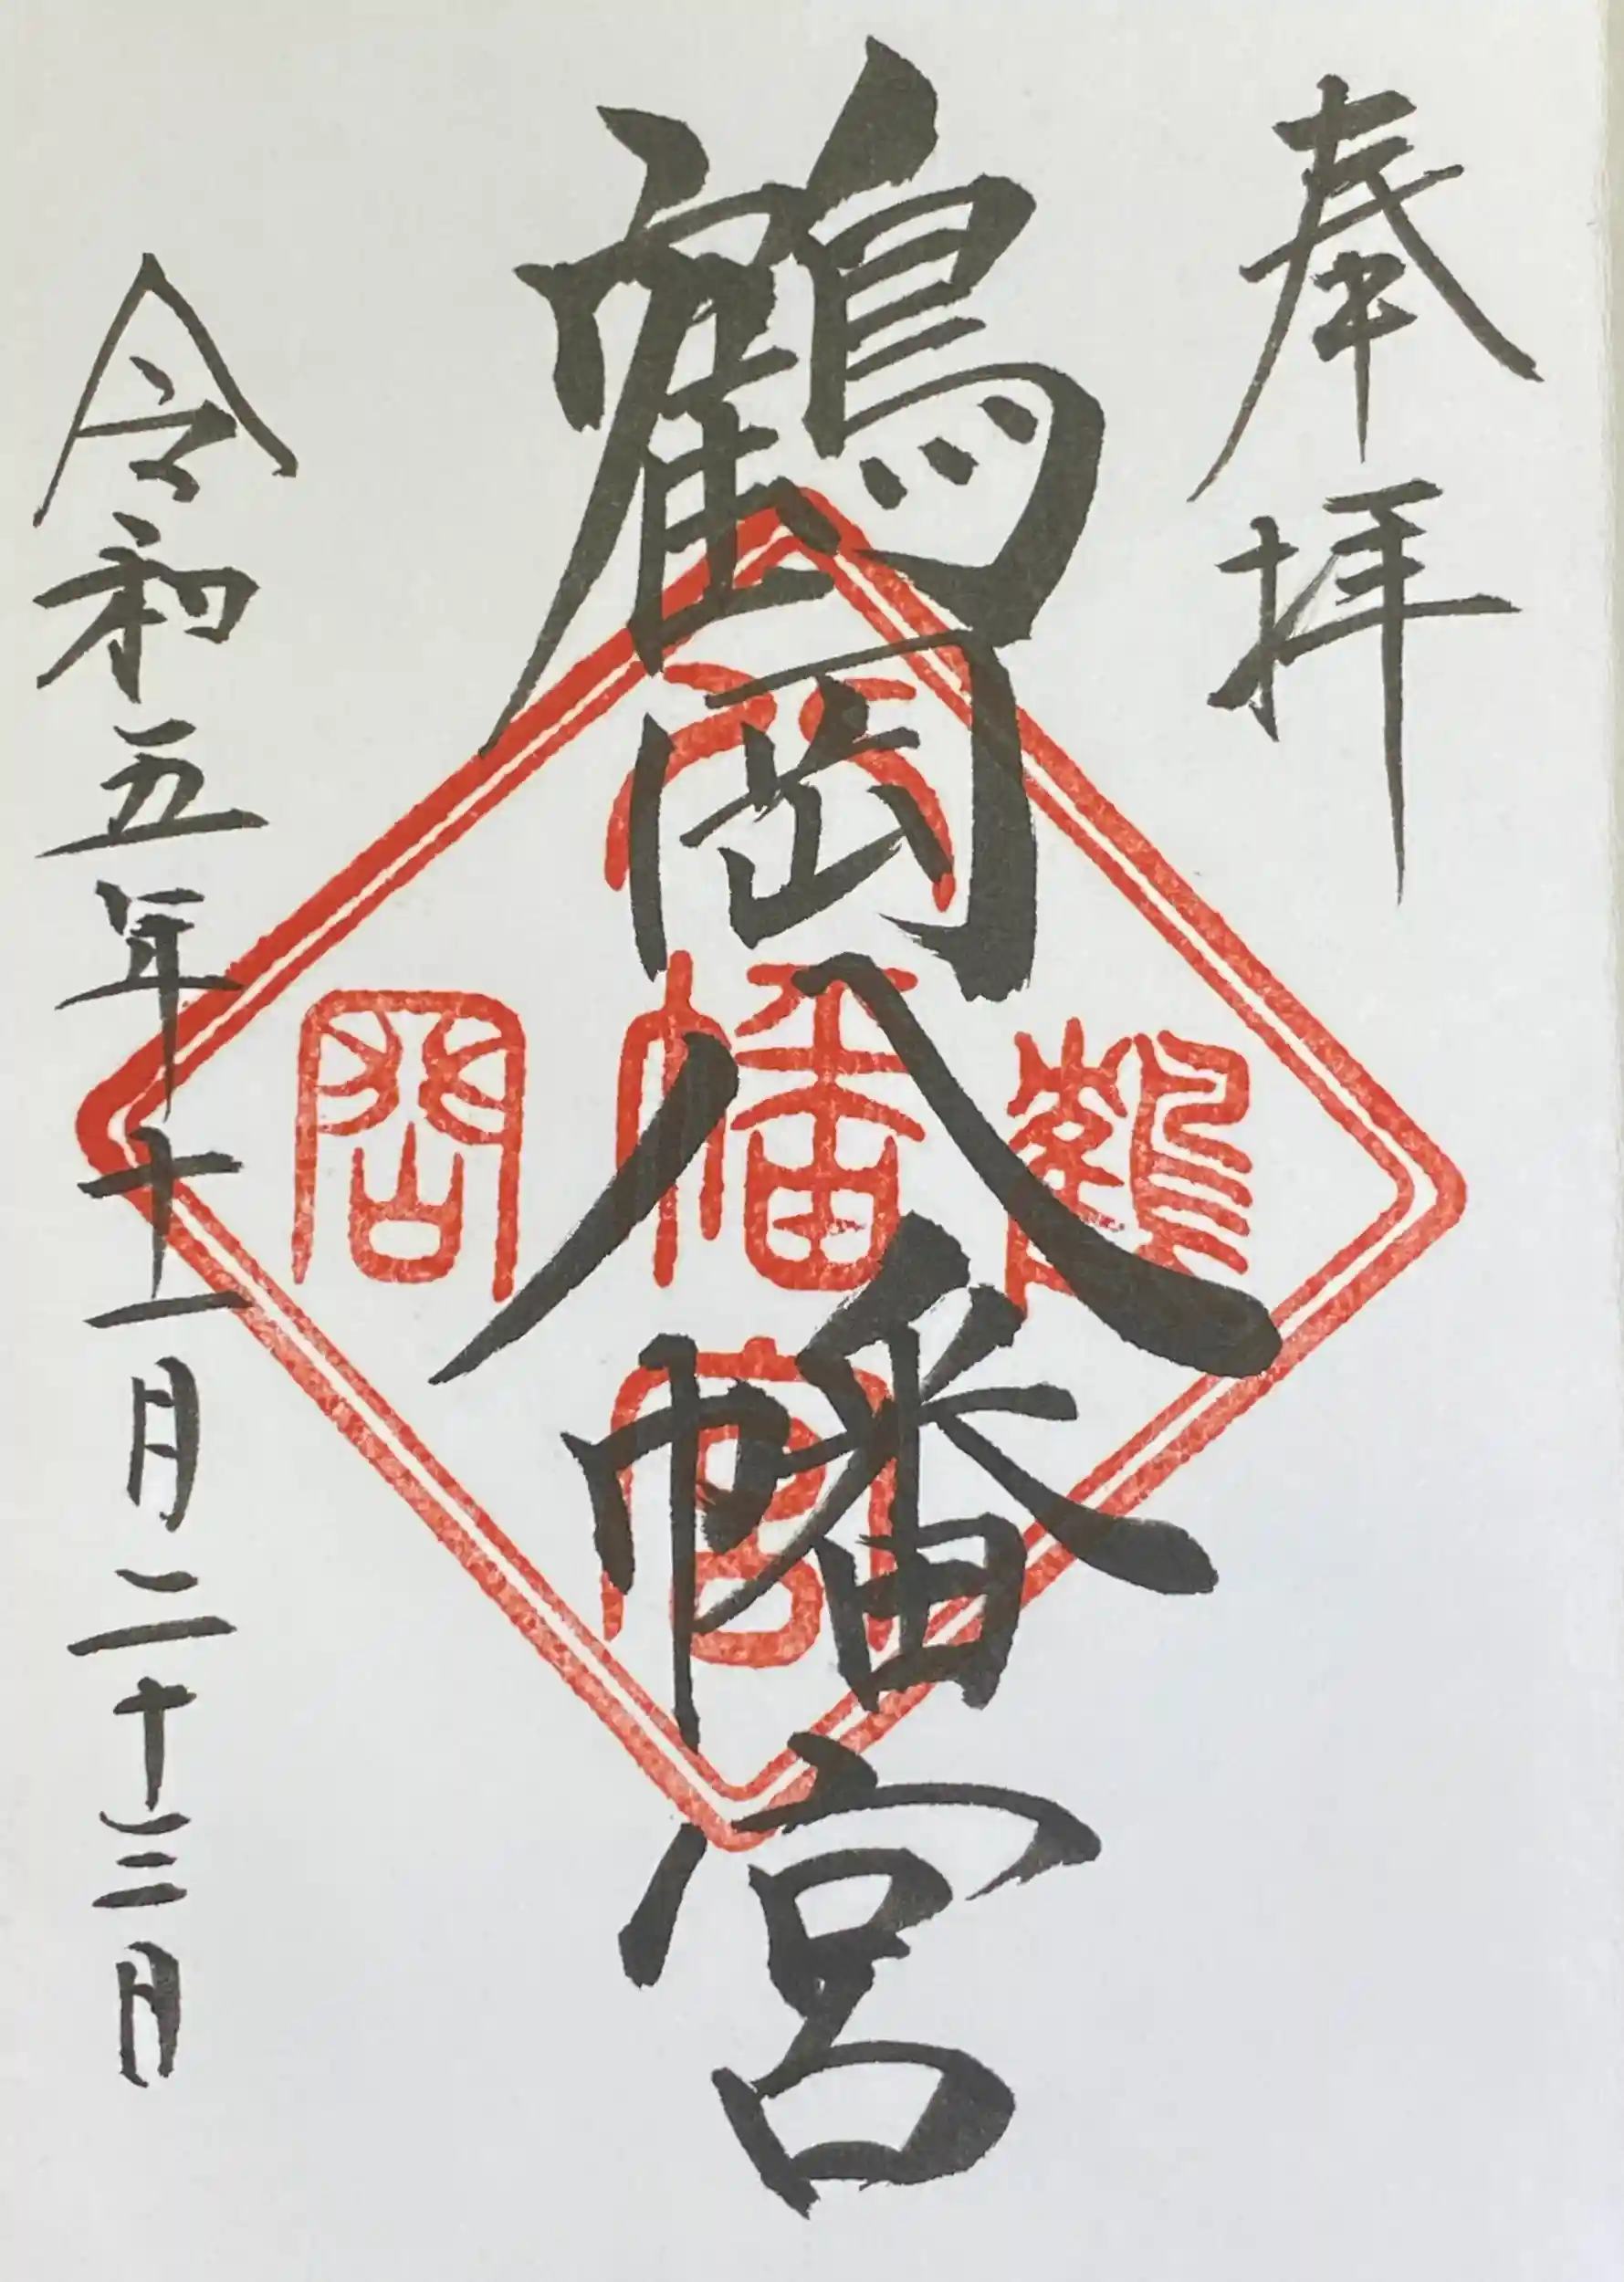 奉拝
鶴岡八幡宮
令和五年十一月二十三日
鶴岡八幡宮